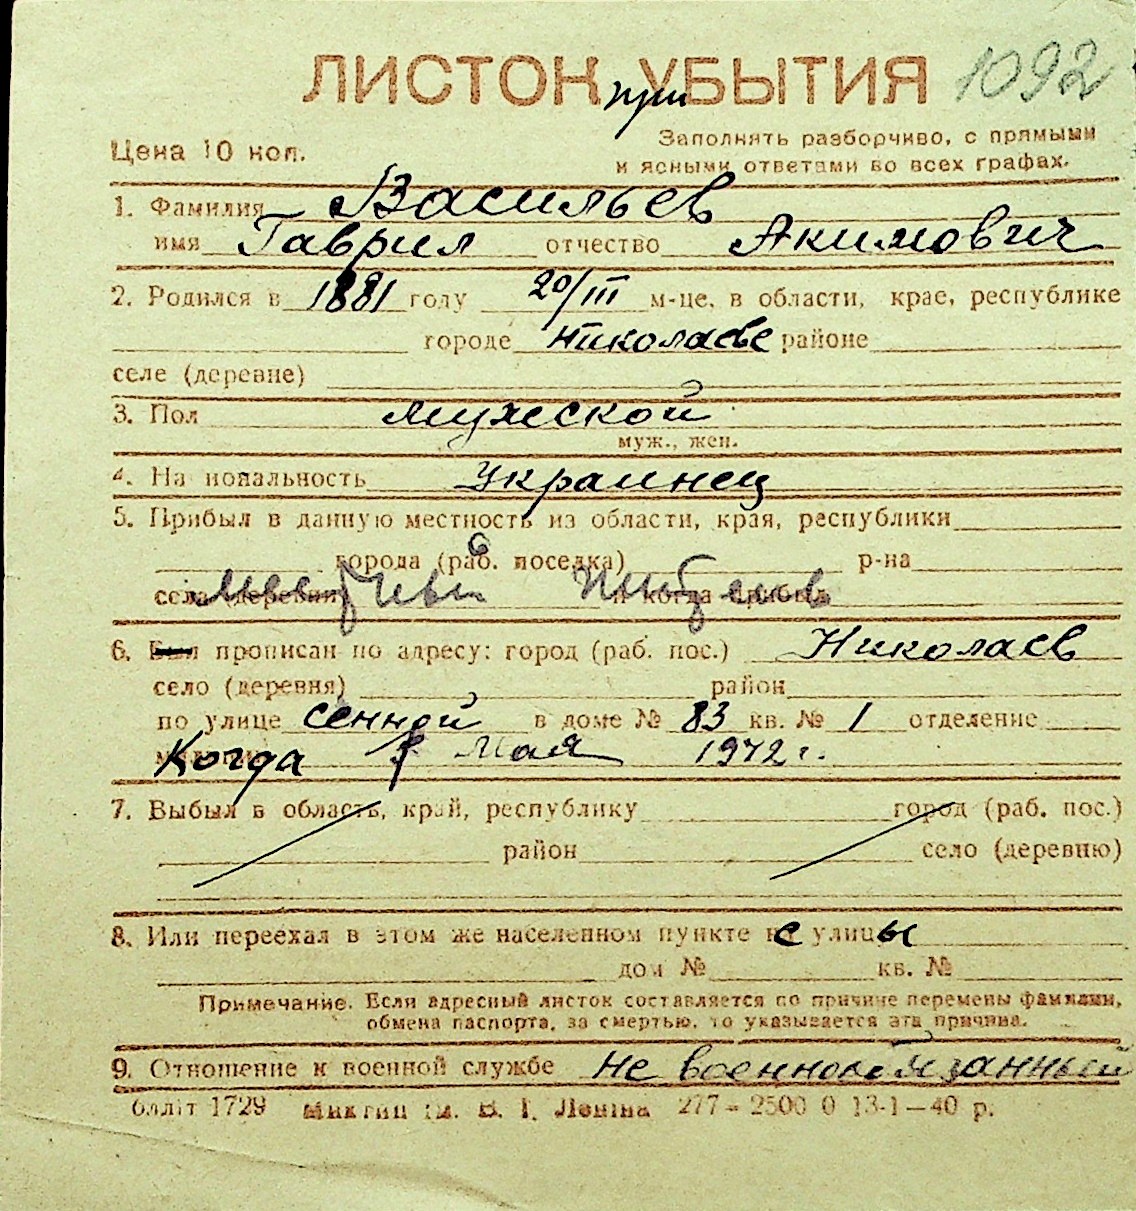 ЛИСТОК при УБЫТИЯ 1092
Цена 10 коп.
Заполнять разборчиво, с прямыми
и ясными ответами во всех графах.
1. Фамилия Васильев
имя Гаврил отчество Акимович
2. Родился в 1881 году 20/III м-це, в области, крае, республике
городе Николаеве районе
селе (деревне)
3. Пол мужской
муж., жен.
4. На иональность Украинец
5. Прибыл в данную местность из области, края, республики
города (раб. поселка) р-на
села (деревни) и когда прибыл
6. Был прописан по адресу: город (раб. пос.) Николаев
село (деревня) район
по улице Сенной в доме № 83 кв. № 1 отделение
Когда Мая 1942 г.
7. Выбыл в область, край, республику город (раб. пос.)
район село (деревню)
8. Или переехал в этом же населенном пункте с улицы
дом № кв. №
Примечание. Если адресный листок составляется по причине перемены фамилии,
обмена паспорта, за смертью, то указывается эта причина.
9. Отношение к военной службе Не военнообязанный
1729 Ім. В. І. Леніна 277 – 2500 0 13-1—40 р.